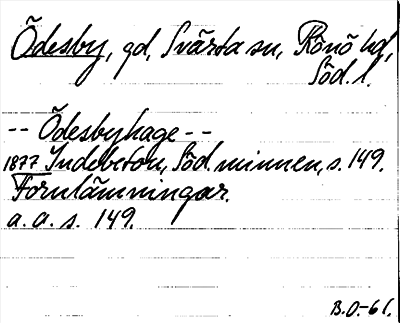 Ödesby, gd, Svärta sn, Rönö hd,
Söd. l.
-- Ödesbyhage --
1877 Indebetou, Söd. minnen, s. 149.
Fornlämningar.
a. a. s. 149.
B.O.-61.